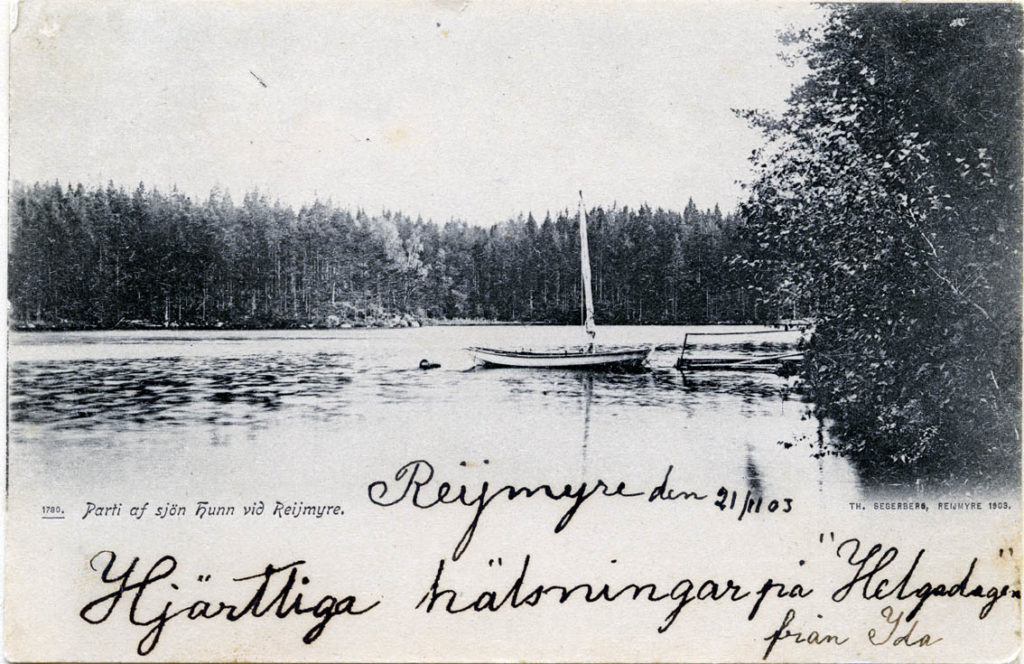 Reijmyre den 21/11 03
1780. Parti af sjön Hunn vid Reijmyre.
TH. SEGERBERG, REIJMYRE 1903.
Hjärtliga hälsningar på "Helgadagen"
från Ida